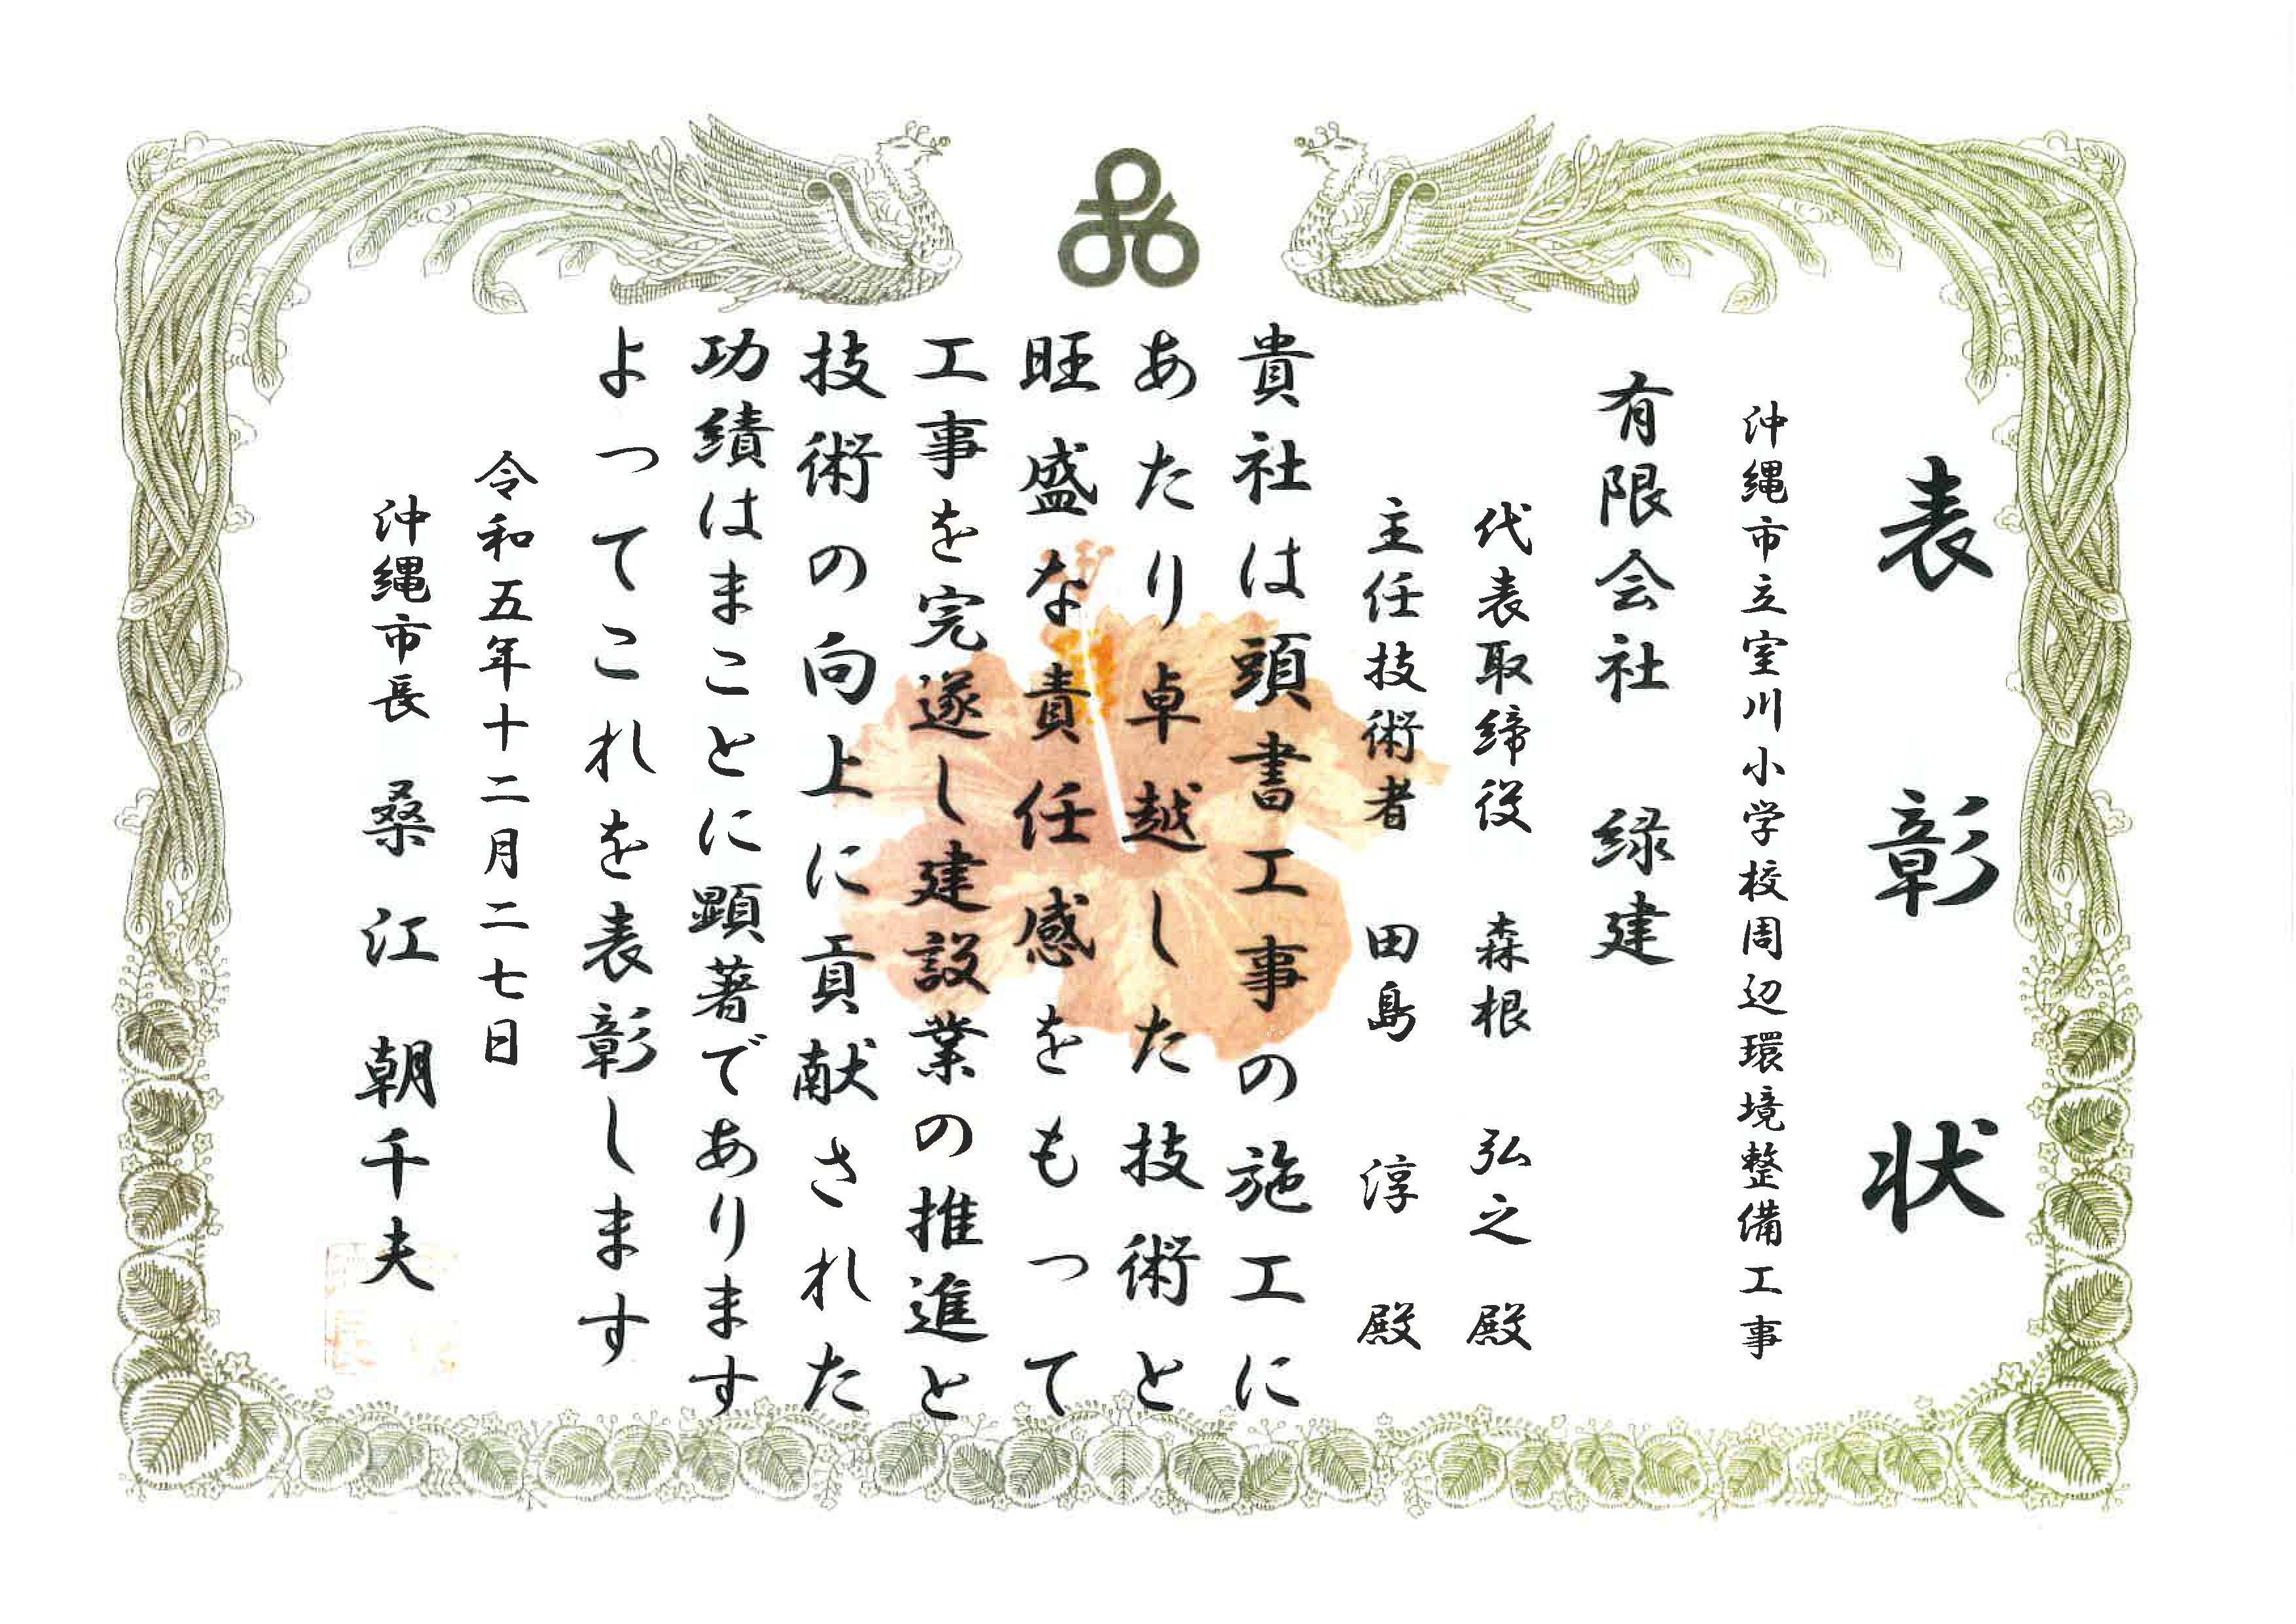 表彰状
沖縄市立室川小学校周辺環境整備工事
有限会社 緑建
代表取締役 森根 弘之 殿
主任技術者 田島 淳 殿
貴社は頭書工事の施工に
あたり卓越した技術と
旺盛な責任感をもって
工事を完遂し建設業の推進と
技術の向上に貢献された
功績はまことに顕著であります
よってこれを表彰します
令和五年十二月二七日
沖縄市長 桑江 朝千夫